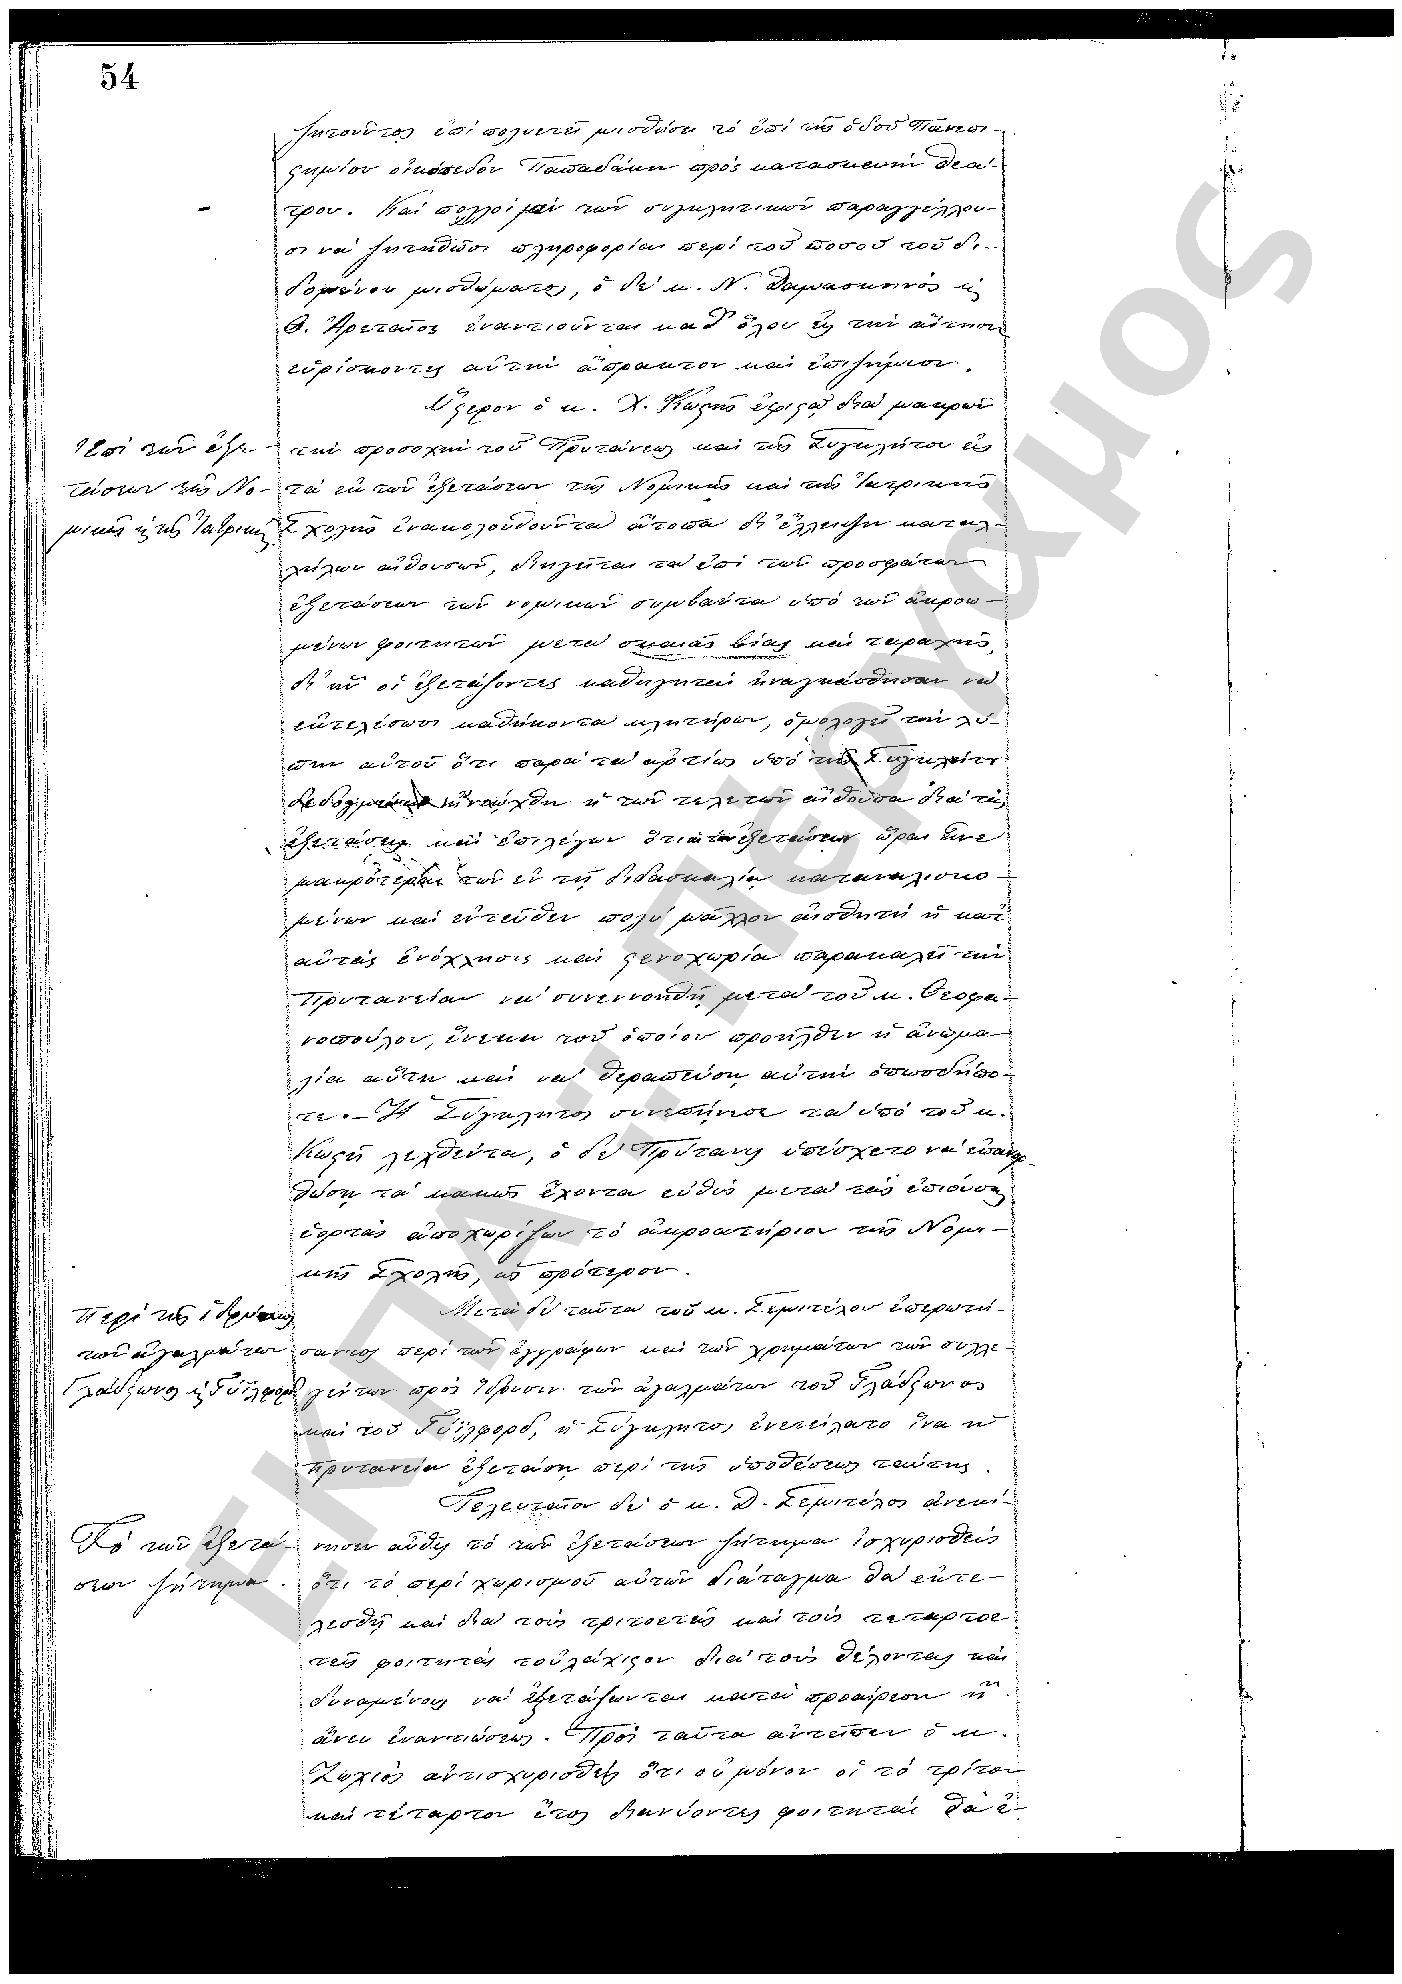 54
ζητοῦντος ἐπὶ πολυετῆ μισθώσει τὸ ἐπὶ τῆς ὁδοῦ Πανεπι-
στημίου οἰκόπεδον Παπαδάκη πρὸς κατασκευὴν θεά-
τρου. Καὶ πολλοὶ μὲν τῶν συγκλητικῶν παραγγέλλου-
σι νὰ ζητηθῶσι πληροφορίαι περὶ τοῦ ποσοῦ τοῦ δι-
δομένου μισθώματος, ὁ δὲ κ. Ν. Δαμασκηνὸς κ
Θ. Ἀρεταῖος ἐναντιοῦνται καθ' ὅλου εἰς τὴν αἴτησιν
εὑρίσκοντες αὐτὴν ἄπρακτον καὶ ἐπιζήμιον.
Ὕστερον ὁ κ. Χ. Κωστῆς ἐφιστᾷ διὰ μακρῶν
Ἐπὶ τῶν ἐξε-
τὴν προσοχὴν τοῦ Πρυτάνεως καὶ τῆς Συγκλήτου εἰς
τάσεων τῆς Νο-
τὰ ἐκ τῶν ἐξετάσεων τῆς Νομικῆς καὶ τῆς Ἰατρικῆς
μικῆς κ τῆς Ἰατρικῆς
Σχολῆς ἐνακολουθοῦντα ἄτοπα δι' ἔλλειψιν καταλ-
λήλων αἰθουσῶν, διηγεῖται τὰ ἐπὶ τῶν προσφάτων
ἐξετάσεων τῶν νομικῶν συμβάντα ὑπὸ τῶν ἀκροω-
μένων φοιτητῶν μετὰ σκαιᾶς βίας καὶ ταραχῆς,
δι' ἣν οἱ ἐξετάζοντες καθηγηταὶ ἠναγκάσθησαν νὰ
ἐκτελέσωσι καθήκοντα κλητήρων, ὁμολογεῖ τὴν λύ-
πην αὐτοῦ ὅτι παρὰ τὰ ἀρτίως ὑπὸ τῆς Συγκλήτου
δεδογμένα ἠνοίχθη ἡ τῶν τελετῶν αἴθουσα διὰ τὰς
ἐξετάσεις καὶ ἐπιλέγων ὅτι αἱ τῶν ἐξετάσεων ὧραι εἶνε
μακρότεραι τῶν ἐν τῇ διδασκαλίᾳ καταναλισκο-
μένων καὶ ἐντεῦθεν πολὺ μᾶλλον αἰσθητὴ ἡ κατ'
αὐτὰς ἐνόχλησις καὶ στενοχωρία παρακαλεῖ τὴν
Πρυτανείαν νὰ συνεννοηθῇ μετὰ τοῦ κ. Θεοφα-
νοπούλου, ἕνεκα τοῦ ὁποίου προῆλθεν ἡ ἀνωμα-
λία αὕτη καὶ νὰ θεραπεύσῃ αὐτὴν ὁπωσδήπο-
τε. – Ἡ Σύγκλητος συνεπῄνεσε τὰ ὑπὸ τοῦ κ.
Κωστῆ λεχθέντα, ὁ δὲ Πρύτανις ὑπέσχετο νὰ ἐπανορ-
θώσῃ τὰ κακῶς ἔχοντα εὐθὺς μετὰ τὰς ἐπιούσας
ἑορτὰς ἀποχωρίζων τὸ ἀκροατήριον τῆς Νομι-
κῆς Σχολῆς, ὡς πρότερον.
Περὶ τῆς ἱδρύσεως
Μετὰ δὲ ταῦτα τοῦ κ. Σεμιτέλου ἐπερωτή-
τῶν ἀγαλμάτων
σαντος περὶ τῶν ἐγγράφων καὶ τῶν χρημάτων τῶν συλλε-
Γλάδστωνος κ Γύϊλφορδ
γέντων πρὸς ἵδρυσιν τῶν ἀγαλμάτων τοῦ Γλάδστωνος
καὶ τοῦ Γύϊλφορδ, ἡ Σύγκλητος ἐνετείλατο ἵνα ἡ
Πρυτανεία ἐξετάσῃ περὶ τῆς ὑποθέσεως ταύτης.
Τελευταῖον δὲ ὁ κ. Δ. Σεμιτέλος ἀνεκί-
Τὸ τῶν ἐξετά-
νησεν αὖθις τὸ τῶν ἐξετάσεων ζήτημα ἰσχυρισθεὶς
σεων ζήτημα.
ὅτι τὸ περὶ χωρισμοῦ αὐτῶν διάταγμα θὰ ἐκτε-
λεσθῇ καὶ διὰ τοὺς τριτοετεῖς καὶ τοὺς τεταρτοε-
τεῖς φοιτητὰς τοὐλάχιστον διὰ τοὺς θέλοντας καὶ
δυναμένους νὰ ἐξετάζωνται κατὰ προαίρεσιν ἢ
ἄνευ ἐναντιώσεως. Πρὸς ταῦτα ἀντεῖπεν ὁ κ.
Ζωχιὸς ἀντισχυρισθεὶς ὅτι οὐ μόνον οἱ τὸ τρίτον
καὶ τέταρτον ἔτος διανύοντες φοιτηταὶ θὰ ἐ-
ΕΚΠΑ :: Πέργαμος